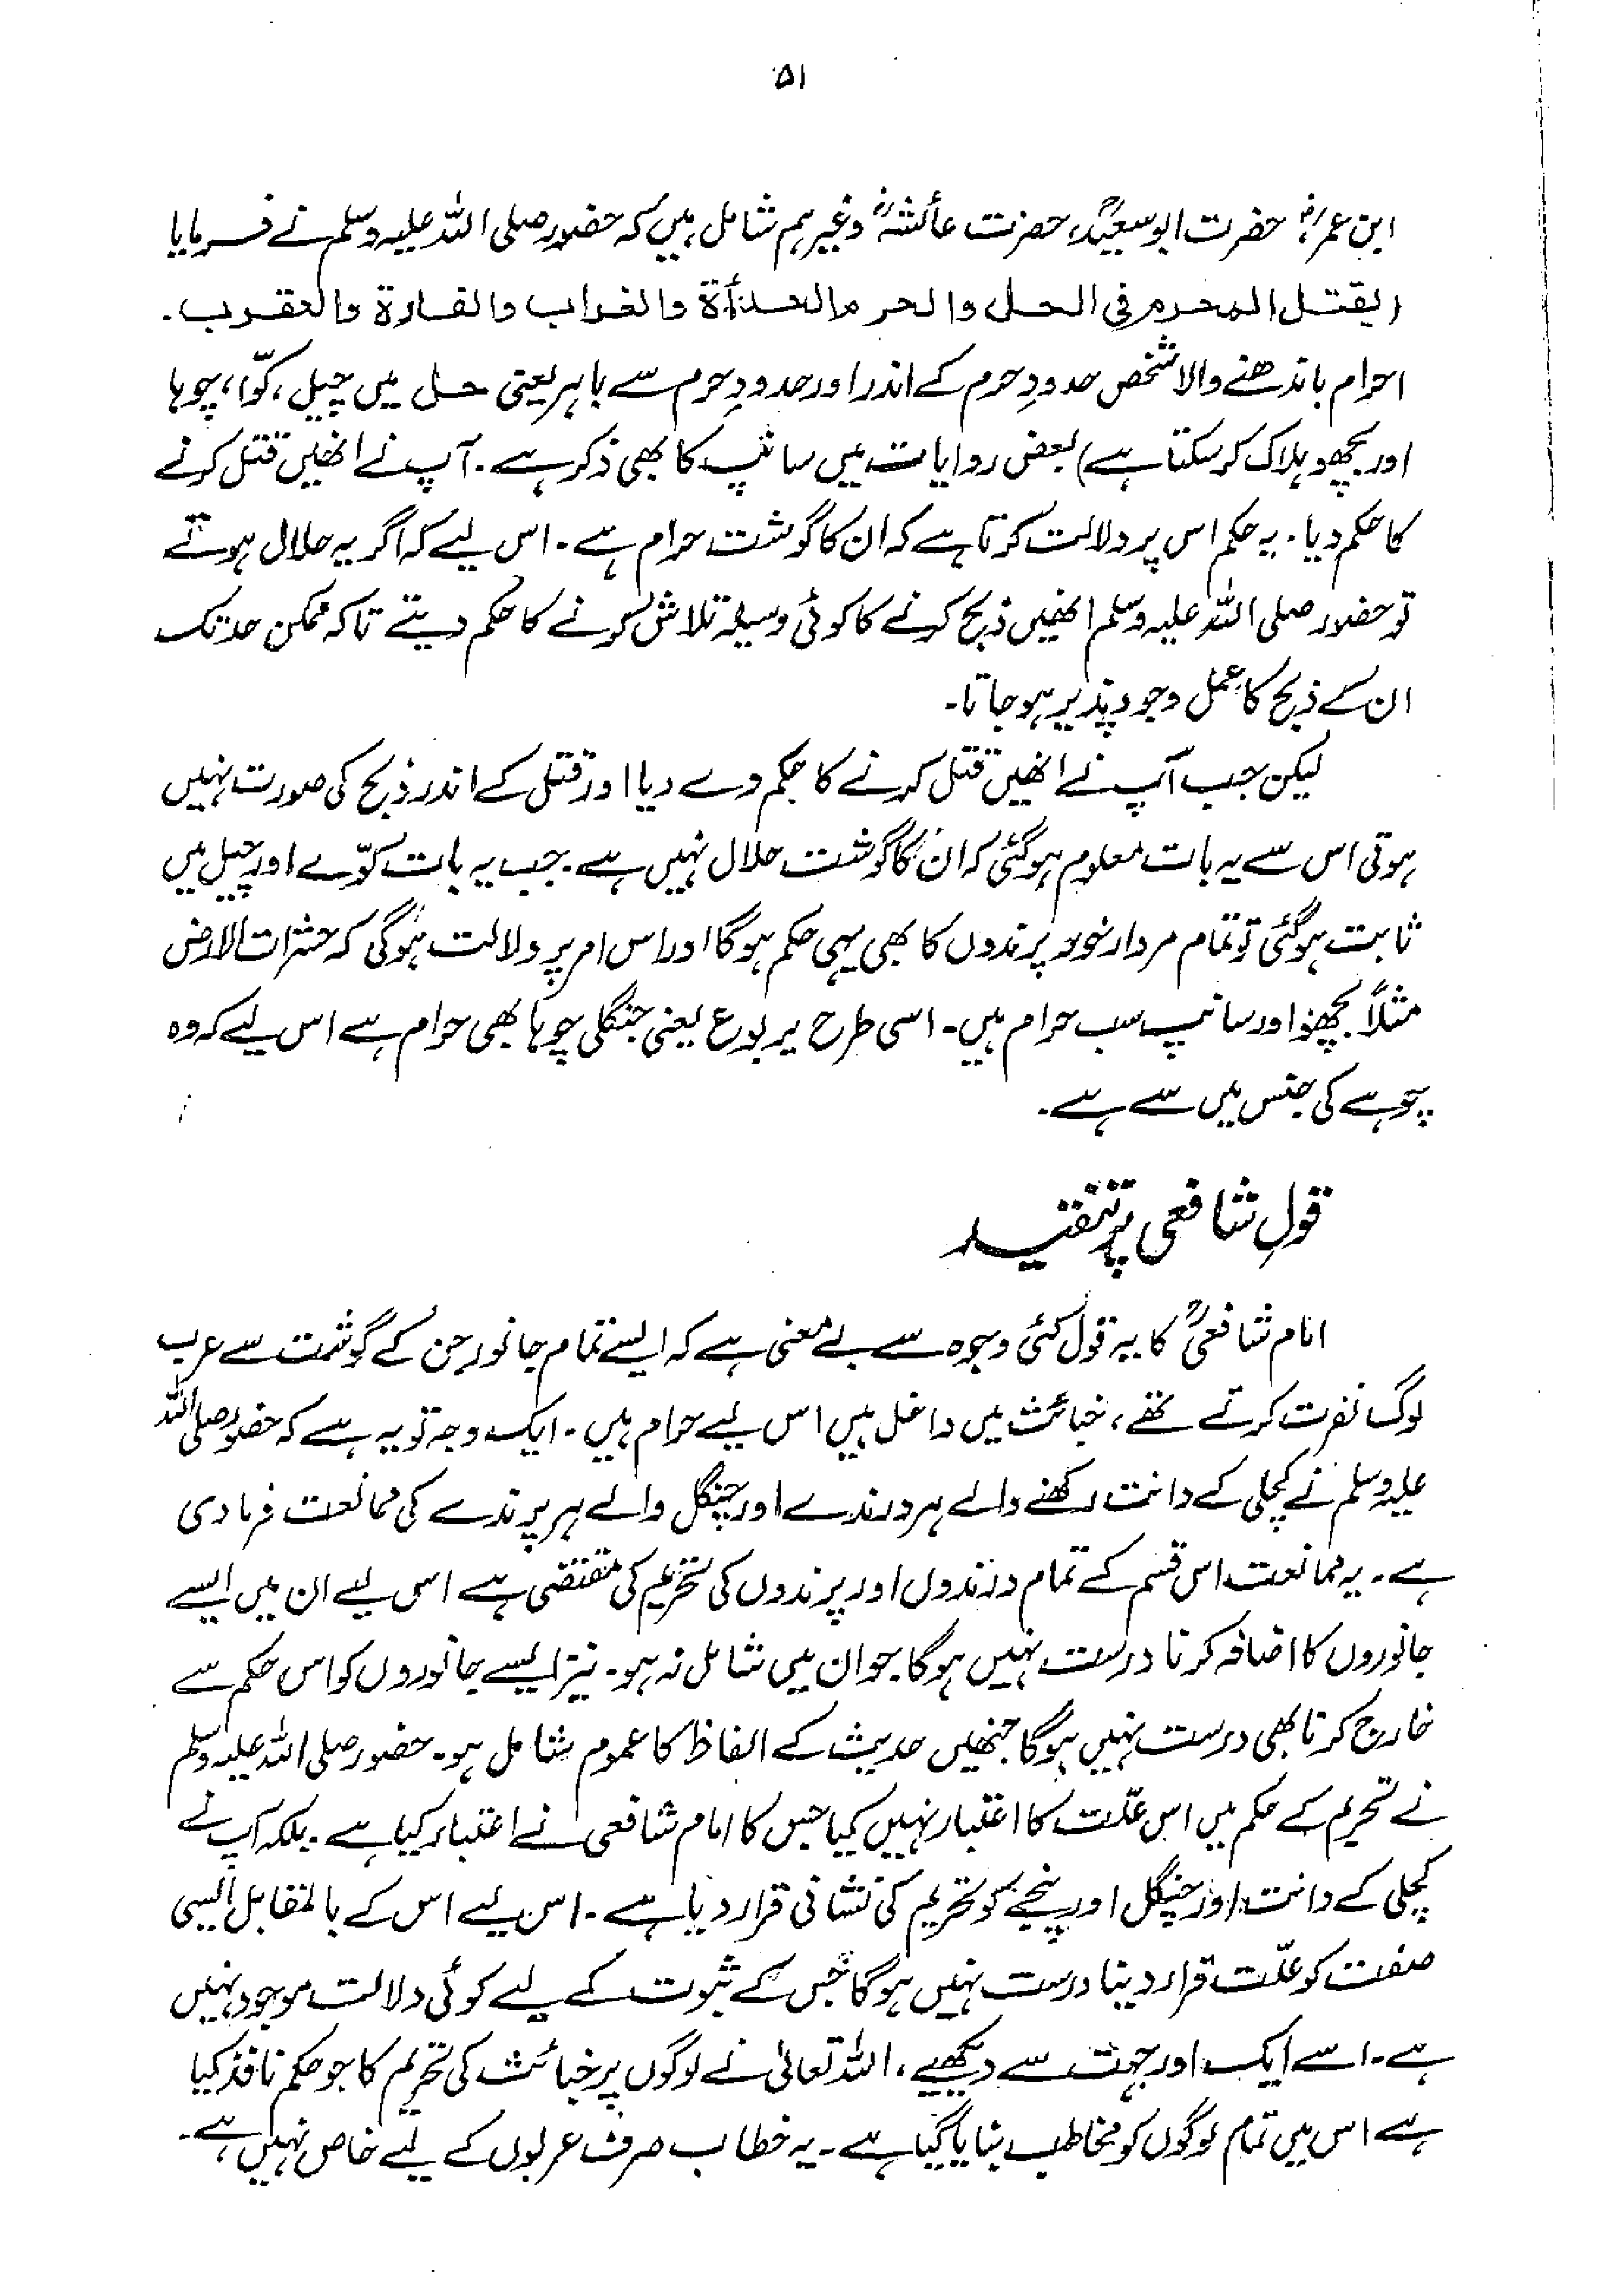 ۵۱
ابن عمرؓ، حضرت ابو سعیدؓ، حضرت عائشہؓ وغیرہم شامل ہیں کہ حضور صلی اللہ علیہ وسلم نے فرمایا
(یقتل المحرم فی الحل والحرم الحدأة والغراب والفارة والعقرب۔
احرام باندھنے والا شخص حدودِ حرم کے اندر اور حدودِ حرم سے باہر یعنی حل میں چیل، کوّا، چوہا
اور بچھو ہلاک کر سکتا ہے) بعض روایات میں سانپ کا بھی ذکر ہے۔ آپ نے انھیں قتل کرنے
کا حکم دیا۔ یہ حکم اس پر دلالت کرتا ہے کہ ان کا گوشت حرام ہے۔ اس لیے کہ اگر یہ حلال ہوتے
تو حضور صلی اللہ علیہ وسلم انھیں ذبح کرنے کا کوئی وسیلہ تلاش کرنے کا حکم دیتے تاکہ ممکن حد تک
ان کے ذبح کا عمل وجود پذیر ہو جاتا۔
لیکن جب آپ نے انھیں قتل کرنے کا حکم دے دیا اور قتل کے اندر ذبح کی صورت نہیں
ہوتی اس سے یہ بات معلوم ہو گئی کہ ان کا گوشت حلال نہیں ہے۔ جب یہ بات کوّے اور چیل میں
ثابت ہو گئی تو تمام مردار خور پرندوں کا بھی یہی حکم ہو گا اور اس امر پر دلالت ہو گی کہ حشرات الارض
مثلاً بچھو اور سانپ سب حرام ہیں۔ اسی طرح یربوع یعنی جنگلی چوہا بھی حرام ہے اس لیے کہ وہ
چوہے کی جنس میں سے ہے۔
قولِ شافعی پر تنقید
امام شافعیؒ کا یہ قول کئی وجوہ سے بے معنی ہے کہ ایسے تمام جانور جن کے گوشت سے عرب
لوگ نفرت کرتے تھے، خبائث میں داخل ہیں اس لیے حرام ہیں۔ ایک وجہ تو یہ ہے کہ حضور صلی اللہ
علیہ وسلم نے کچلی کے دانت رکھنے والے ہر درندے اور چنگل والے ہر پرندے کی ممانعت فرما دی
ہے۔ یہ ممانعت اس قسم کے تمام درندوں اور پرندوں کی تحریم کی مقتضی ہے اس لیے ان میں ایسے
جانوروں کا اضافہ کرنا درست نہیں ہو گا جو ان میں شامل نہ ہو۔ نیز ایسے جانوروں کو اس حکم سے
خارج کرنا بھی درست نہیں ہو گا جنھیں حدیث کے الفاظ کا عموم شامل ہو۔ حضور صلی اللہ علیہ وسلم
نے تحریم کے حکم میں اس علّت کا اعتبار نہیں کیا جس کا امام شافعی نے اعتبار کیا ہے۔ بلکہ آپ نے
کچلی کے دانت اور چنگل اور پنجے کو تحریم کی نشانی قرار دیا ہے۔ اس لیے اس کے بالمقابل ایسی
صفت کو علّت قرار دینا درست نہیں ہو گا جس کے ثبوت کے لیے کوئی دلالت موجود نہیں
ہے۔ اسے ایک اور جہت سے دیکھیے، اللہ تعالیٰ نے لوگوں پر خبائث کی تحریم کا جو حکم نافذ کیا
ہے اس میں تمام لوگوں کو مخاطب بنایا گیا ہے۔ یہ خطاب صرف عربوں کے لیے خاص نہیں ہے۔